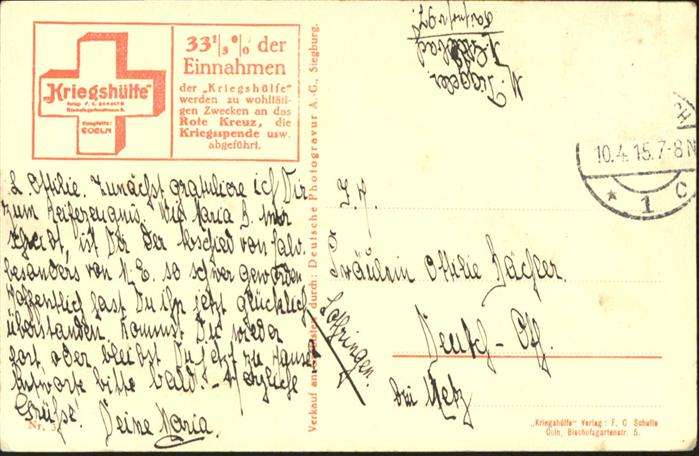 Kriegshülfe
Verlag F. C. Schulte
Bischofsgartenstrasse 5.
Hauptstelle:
COELN
33 1/3 % der
Einnahmen
der „Kriegshülfe"
werden zu wohltäti-
gen Zwecken an das
Rote Kreuz, die
Kriegsspende usw.
abgeführt.
L. Ottilie. Zunächst gratuliere ich Dir
zum Reifezeugnis. Wie Maria B. mir
schreibt, ist Dir der Abschied von
besonders von N. E. so schwer geworden
Hoffentlich hast Du ihn jetzt glücklich
überstanden. Kommst Du wieder
dort oder bleibst Du jetzt zu Hause
Antworte bitte bald! Herzliche
Grüsse! Deine Maria.
Nr.
Verkauf an durch: Deutsche Photogravur A. G., Siegburg.
10.4.15.7-8N
* 1 C
Fräulein Ottilie
bei Metz
Lothringen.
„Kriegshülfe" Verlag: F. C. Schulte
Cöln, Bischofsgartenstr. 5.